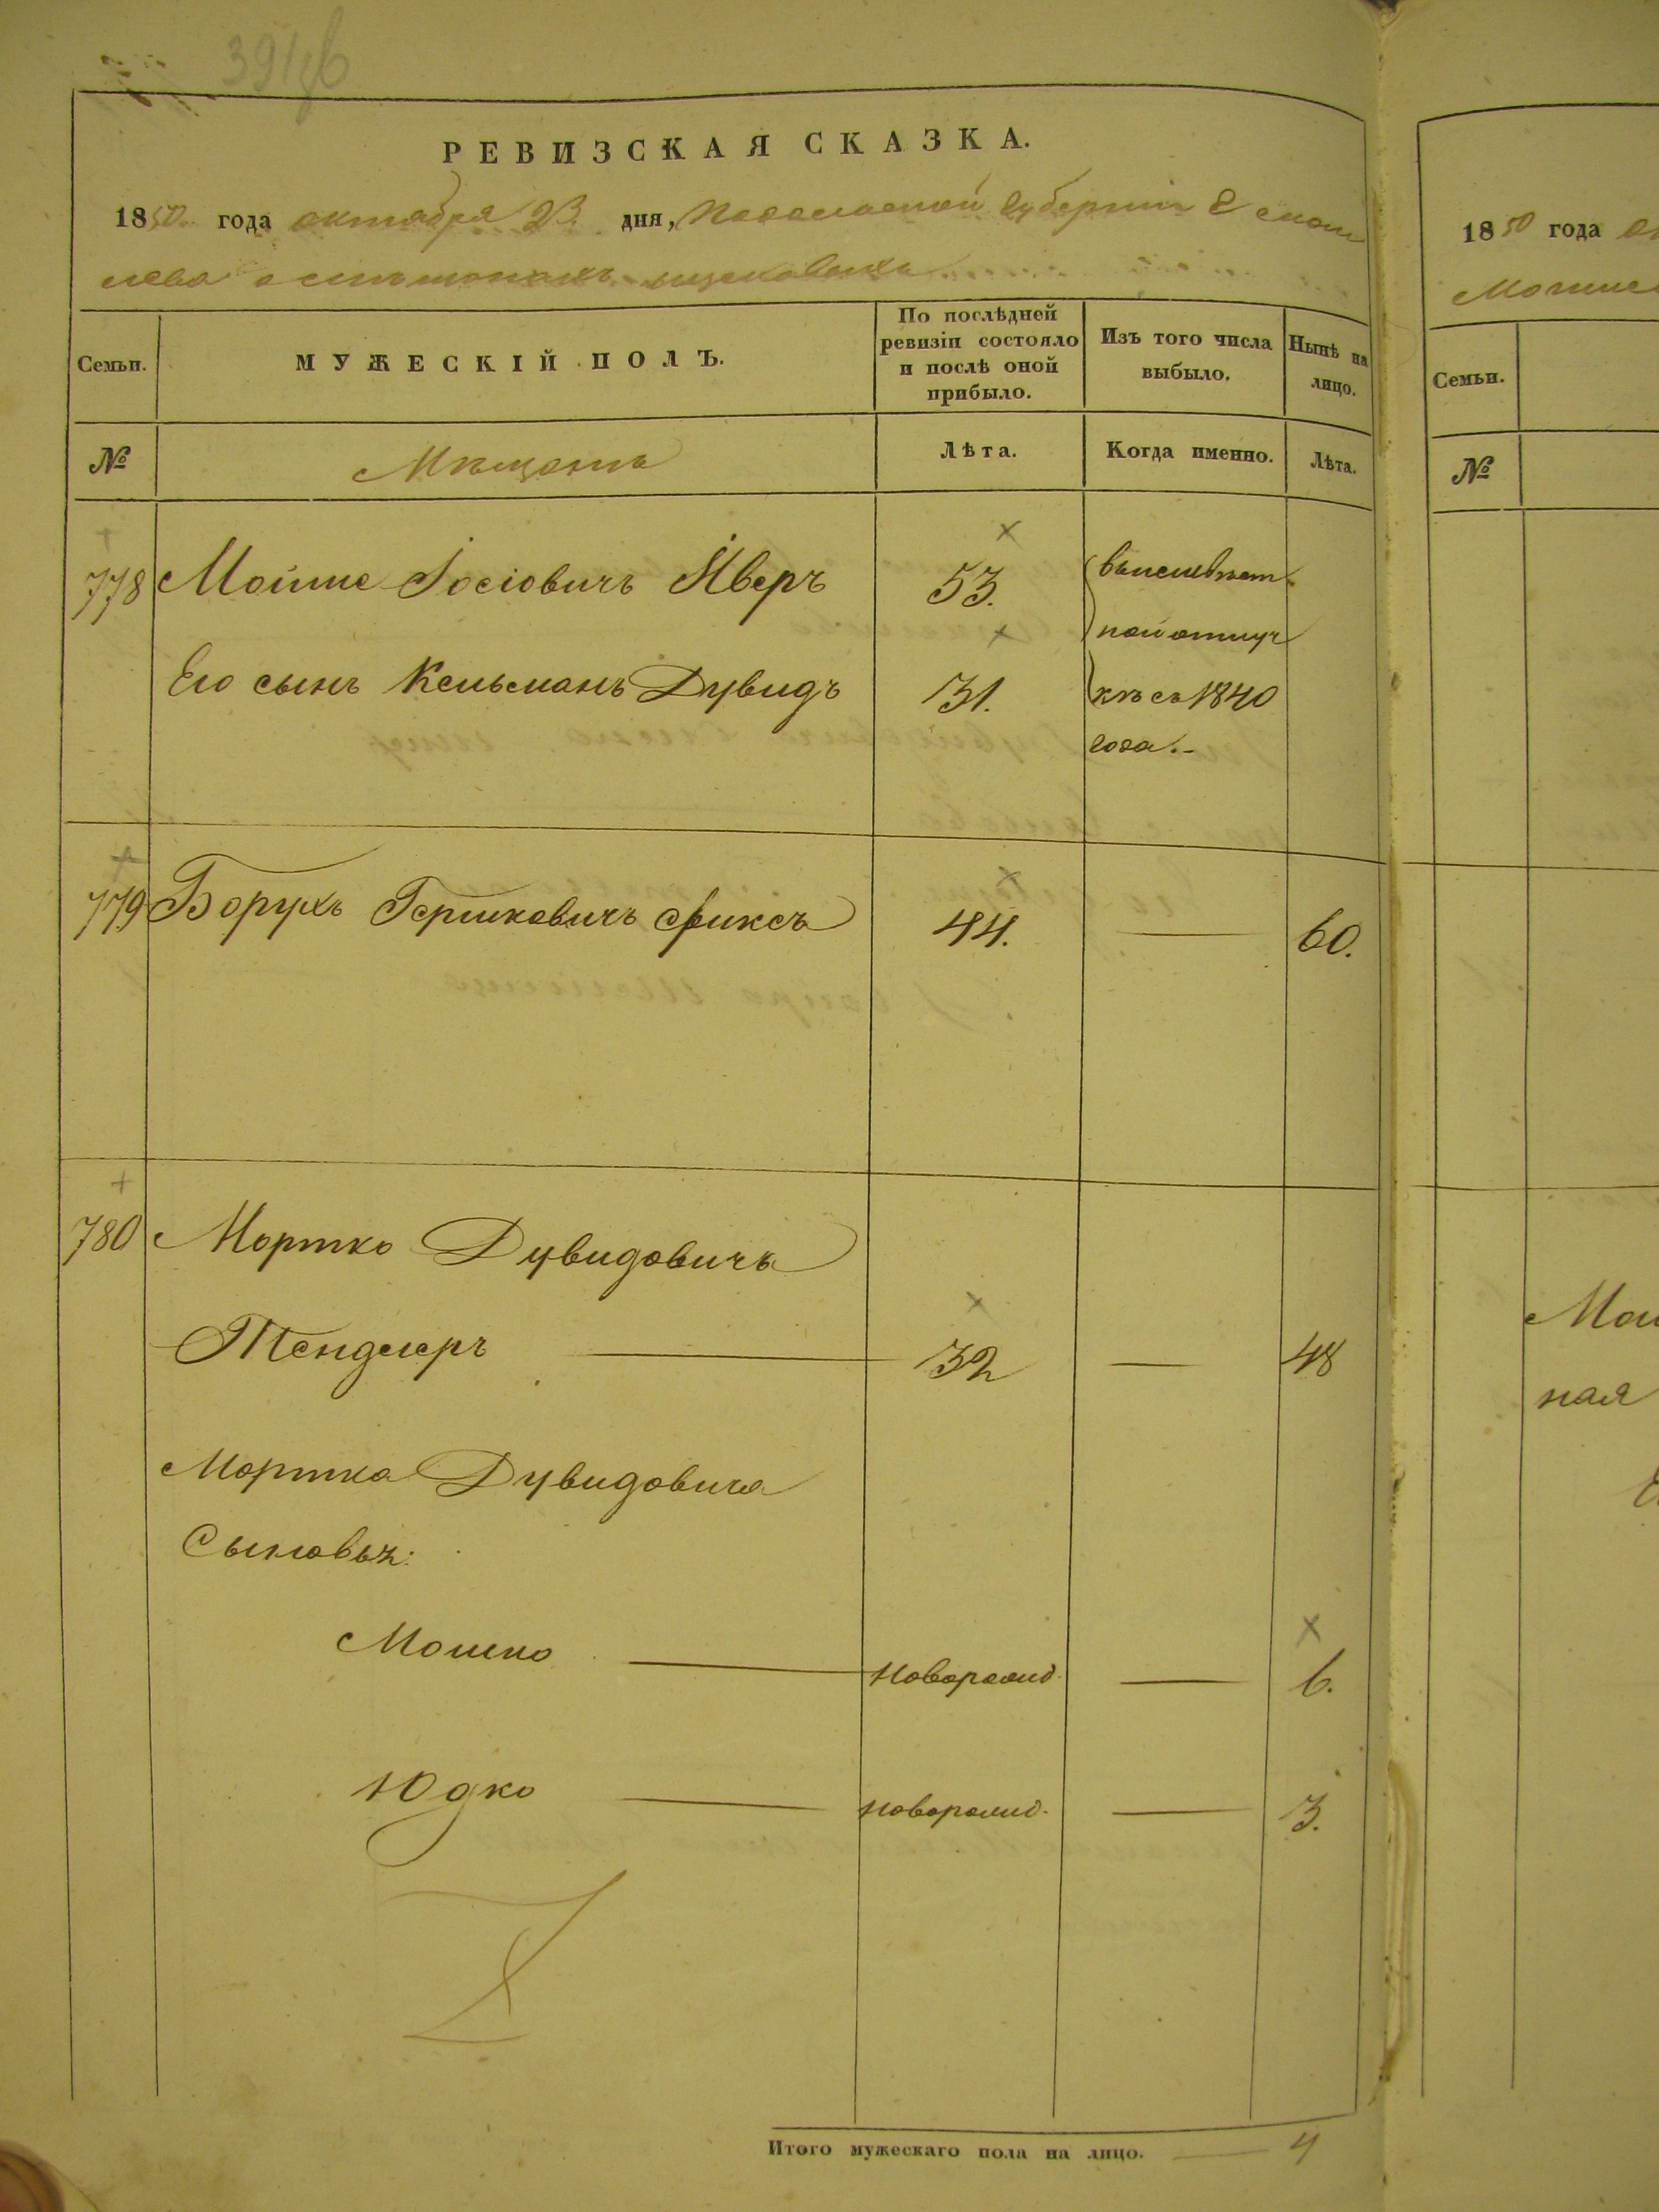 РЕВИЗСКАЯ СКАЗКА.
1850 года октября 23 дня, Подольской Губерніи г Моги
лева о
Семьи.
МУЖЕСКІЙ ПОЛЪ.
По послѣдней
ревизіи состояло
и послѣ оной
прибыло.
Изъ того числа
выбыло.
Нынѣ на
лицо.
№
Мѣщанъ
Лѣта.
Когда именно.
Лѣта.
778 Мойше Іосіовичъ Яверъ 53.
въ неизвѣст
ной отлуч
Его сынъ Кельманъ Дувидъ 31.
кѣ съ 1840
года.
779 Борухъ Гершковичъ Фиксъ 44. — 60.
780 Мортко Дувидовичъ
Тендлеръ — 32 — 48
Мортка Дувидовича
Сыновья:
Мошко — новорожд. — 6.
Юдко — новорожд. — 3.
Итого мужескаго пола на лицо. — 4
1850 года
Семьи.
№
ная